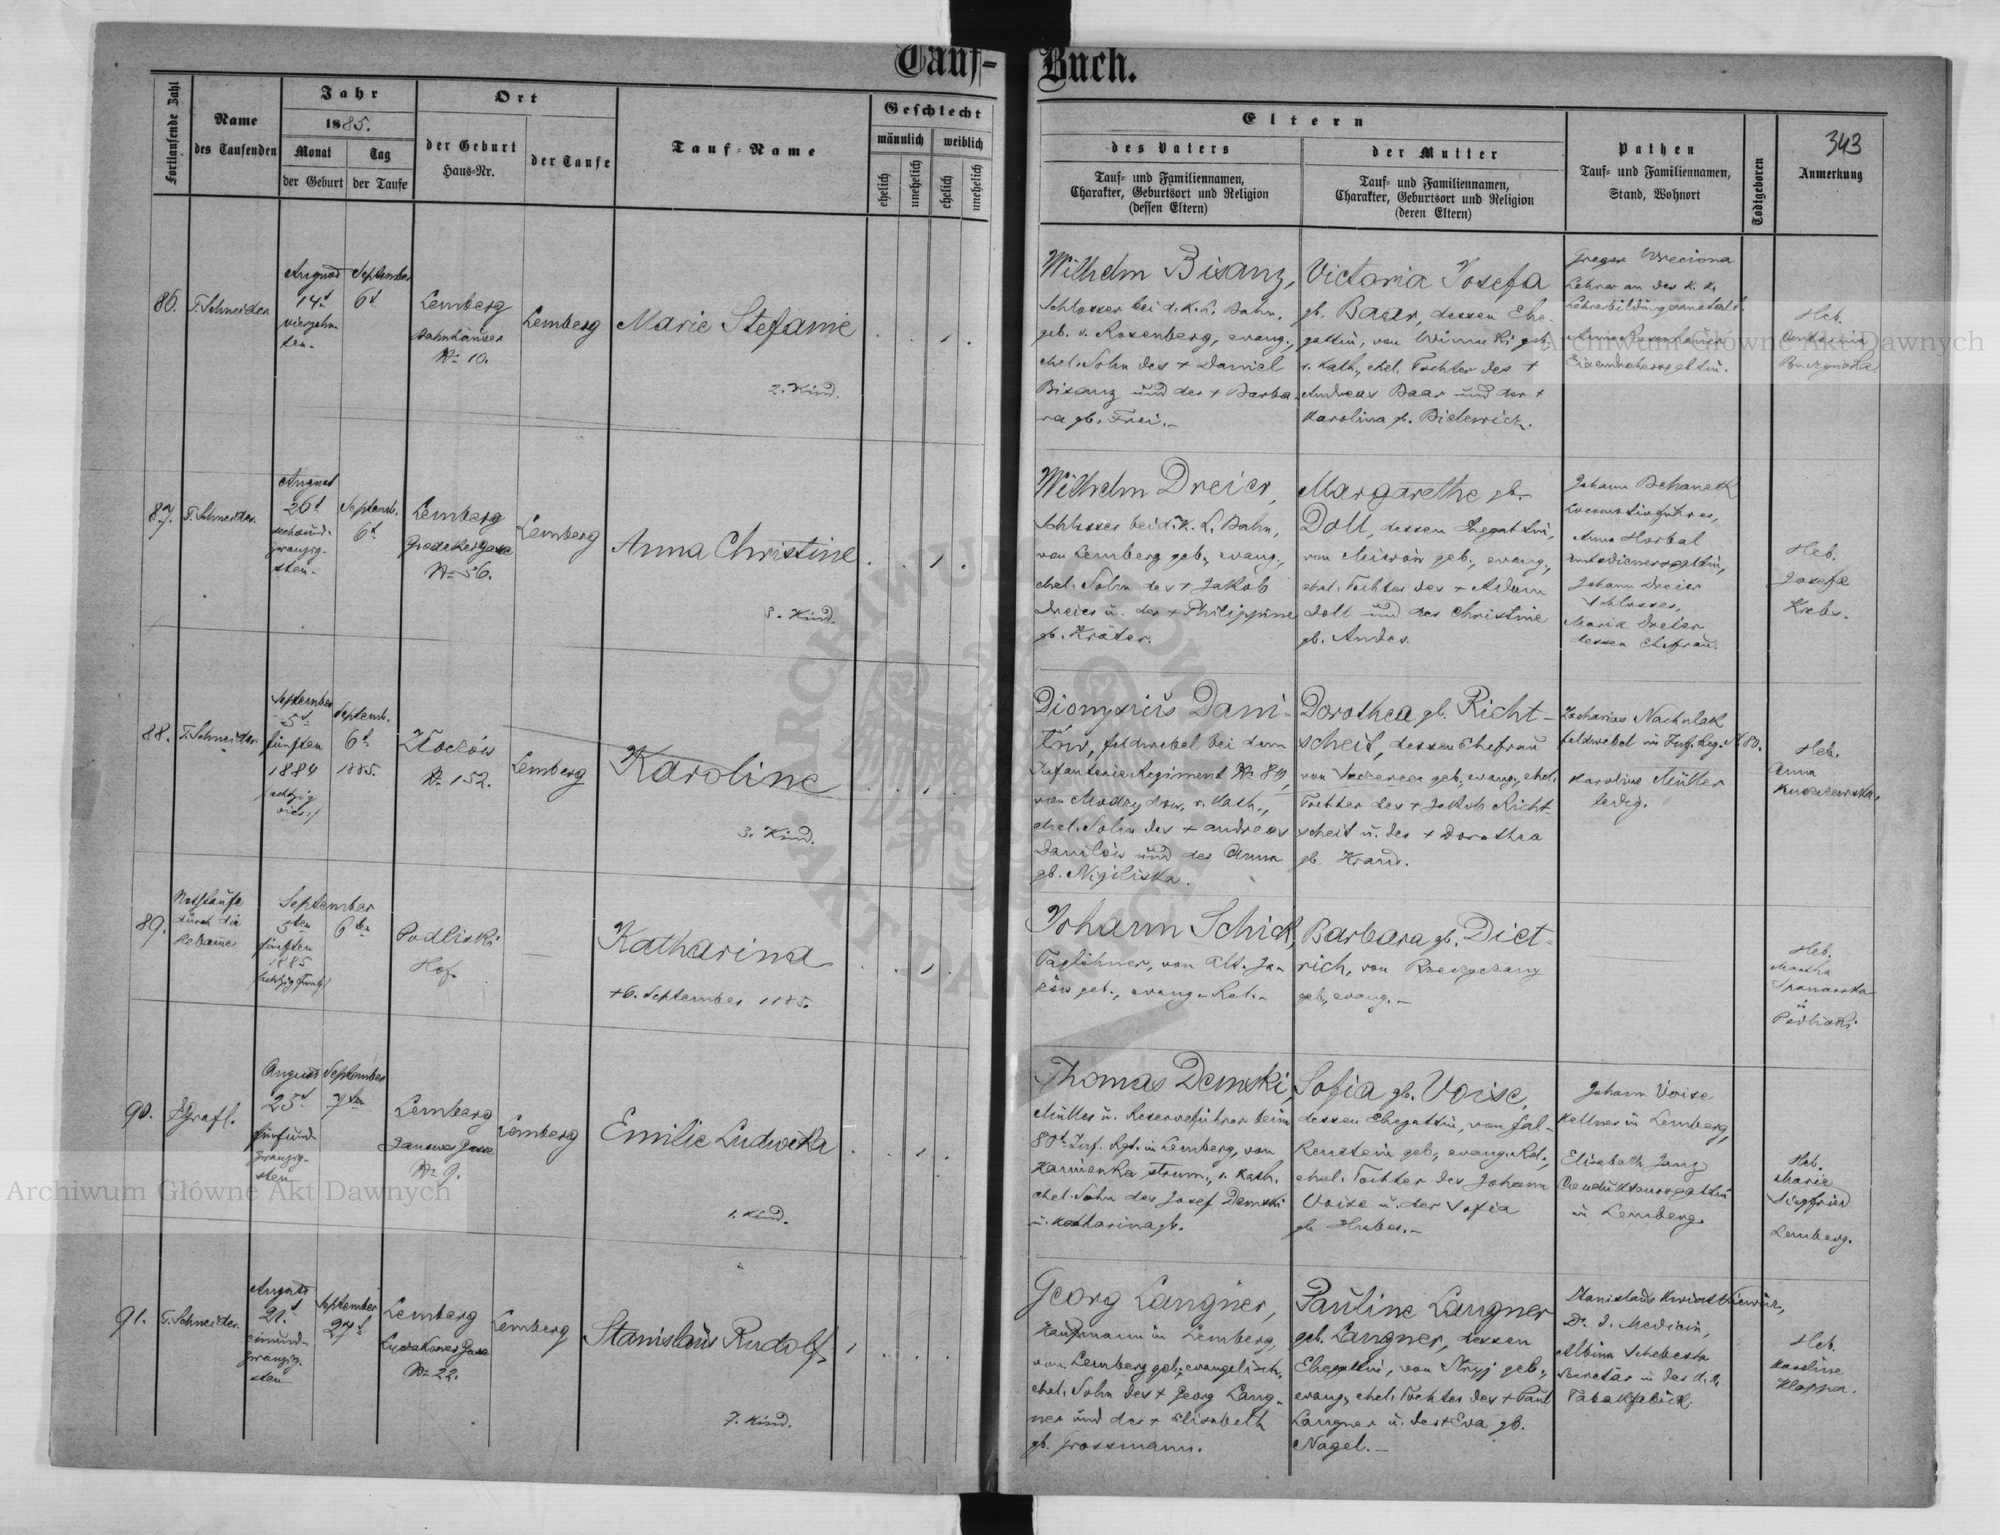 Tauf-Buch.
343
Fortlaufende Zahl
Name
des Taufenden
Jahr
1885.
Monat
der Geburt
Tag
der Taufe
Ort
der Geburt
Haus-Nr.
der Taufe
Tauf-Name
Geschlecht
männlich
weiblich
ehelich
unehelich
ehelich
unehelich
Eltern
des Vaters
Tauf- und Familiennamen,
Charakter, Geburtsort und Religion
(dessen Eltern)
der Mutter
Tauf- und Familiennamen,
Charakter, Geburtsort und Religion
(deren Eltern)
Pathen
Tauf- und Familiennamen,
Stand, Wohnort
Todtgeboren
Anmerkung
86.
T. Schneider
August
14t
vierzehn
ten.
September
6t
Lemberg
Bahnhäuser
No 10.
Lemberg
Marie Stefanie
2. Kind.
Wilhelm Bisanz,
Schlosser bei d. K. L. Bahn,
geb. v. Rosenberg, evang.,
ehel. Sohn des + Daniel
Bisanz und der + Barba-
ra gb. Frei.
Victoria Josefa
gb. Baar, dessen Ehe-
gattin, von Winniki geb.
r. kath., ehel. Tochter des +
Andreas Baar und der +
Karolina gb.
Gregor
Lehrer an der k. k.
Lehrerbildungsanstalt.
Heb.
87.
T. Schneider.
August
26t
sechsund-
zwanzig-
sten.
Septemb.
6t
Lemberg
Grodeker Gasse
No 56.
Lemberg
Anna Christine
8. Kind.
Wilhelm Dreier,
Schlosser bei d. K. L. Bahn,
von Lemberg geb., evang.,
ehel. Sohn des + Jakob
Dreier u. der + Philippine
gb. Kräter.
Margarethe gb.
Doll, dessen Ehegattin,
von geb., evang.,
ehel. Tochter des + Adam
Doll und der Christine
gb. Andes.
Johann Behanek
Locomotivführer,
Anna Horbal
Amtsdienersgattin,
Johann Dreier
Schlosser,
Maria Dreier
dessen Ehefrau.
Heb.
Josefa
Krebs.
88.
T. Schneider
September
5t
fünften
1884
(achtzig
vier)
Septemb.
6t
1885.
No 152.
Lemberg
Karoline
3. Kind.
Dionysius Dani-
łow, Feldwebel bei dem
Infanterie Regiment No 80,
ehel. Sohn des + Andreas
Daniłow und der Anna
gb.
Dorothea gb. Richt-
scheit, dessen Ehefrau
geb., evang., ehel.
Tochter des + Jakob Richt-
scheit u. der + Dorothea
gb.
Zacharias Nachulak
Feldwebel im Inf. Reg. No 80.
Karoline Müller
ledig.
Heb.
Anna
89.
Nothtaufe
durch die
Hebamme
September
5ten
fünften
1885
6ten
Podliski
Hof.
—
Katharina
+ 6. September 1885.
Johann Schick,
Taglöhner, von Alt-Ja-
żów geb., evang. Rel.
Barbara gb. Diet-
rich, von
geb., evang.
Heb.
Martha
Podliski.
90.
August
25t
fünfund-
zwanzig-
sten
September
7ten
Lemberg
Janower Gasse
No 9.
Lemberg
Emilie Ludwika
1. Kind.
Thomas Demski,
Müller u. Reserveführer beim
80t Inf. Rgt. in Lemberg, von
Kamienka strum., r. kath.
ehel. Sohn des Josef Demski
u. Katharina gb.
Sofia gb. Voise,
dessen Ehegattin, von Fal-
kenstein geb., evang. Rel.,
ehel. Tochter des Johann
Voise u. der Sofia
gb. Huber.
Johann Voise
Kellner in Lemberg,
Elisabeth Jung
Conduktorsgattin
in Lemberg.
Heb.
Marie
Siegfried
Lemberg.
91.
T. Schneider.
August
21t
einund-
zwanzig-
sten
September
27t
Lemberg
No 22.
Lemberg
Stanislaus Rudolf,
7. Kind.
Georg Langner,
Kaufmann in Lemberg,
von Lemberg geb., evangelisch,
ehel. Sohn des + Georg Lang-
ner und der + Elisabeth
gb. Grossmann.
Pauline Langner
geb. Langner, dessen
Ehegattin, von Stryj geb.,
evang., ehel. Tochter des + Paul
Langner u. der + Eva gb.
Nagel.
Dr. d. Medicin,
Albina Schebesta
Secretär in der k. k.
Tabakfabrik.
Heb.
Karoline
Klappa.
Archiwum Główne Akt Dawnych
Archiwum Główne Akt Dawnych